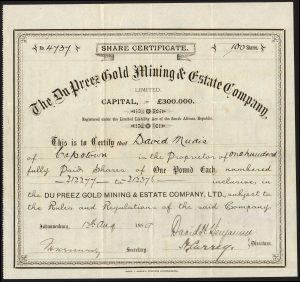 No. 4737 SHARE CERTIFICATE. 100 Shares.
The Du Preez Gold Mining & Estate Company,
LIMITED.
CAPITAL, - £300.000.
Registered under the Limited Liability Act of the South African Republic.
This is to Certify that David Mudie
of Capetown is the Proprietor of One hundred
fully Paid Shares of One Pound Each, numbered
to inclusive, in the
DU PREEZ GOLD MINING & ESTATE COMPANY, LTD., subject to
the Rules and Regulations of the said Company.
Johannesburg, Aug
Secretary.
Directors.